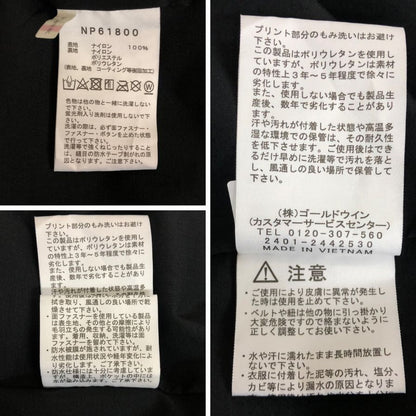 NP61800
表地 ナイロン 100%
裏地 ナイロン
ポリエステル
ポリウレタン
(表地、裏地、コーティング等樹脂加工)
色物は他の物と一緒に洗濯しないで
下さい。
蛍光剤入り洗剤は使用しないで下
さい。
洗濯の際は、必ず面ファスナー・
ファスナー・ボタンを止めて下さ
い。
洗濯等で強くねじったりすること
は、縫目の防水テープ剥がれの原
因となりますのでお避け下さい。
プリント部分のもみ洗いはお避け
下さい。
この製品はポリウレタンを使用し
ていますが、ポリウレタンは素材
の特性上3年~5年程度で徐々に
劣化します。
また、使用しない場合でも製品生
産後、数年で劣化することがあり
ます。
汗や汚れが付着した状態や高温多
拭き取り、風通しの良い場所で乾
燥させて下さい。
面ファスナーを使用している製品
は表生地、その他との摩擦により
毛羽立ちの発生する可能性があり
ます。着用、収納、洗濯等は面フ
ァスナーを閉じて下さい。
防水縫製が施されていますが、耐
水性能は使用状況や経年変化によ
り劣化しますのでご了承下さい。
プリント部分のもみ洗いはお避け
下さい。
この製品はポリウレタンを使用し
ていますが、ポリウレタンは素材
の特性上3年~5年程度で徐々に
劣化します。
また、使用しない場合でも製品生
産後、数年で劣化することがあり
ます。
汗や汚れが付着した状態や高温多
湿な環境での保管は、その耐久性
を低下させます。ご使用後はでき
るだけ早めに洗濯等で汚れを落と
し、風通しの良い場所で保管して
下さい。
(株)ゴールドウイン
(カスタマーサービスセンター)
TEL 0120-307-560
2401-2442530
MADE IN VIETNAM
注意
・ご使用により皮膚に異常が発生し
た時は使用を止めて下さい。
・ベルトや紐は他の物に引っ掛かり
大変危険ですので絡まないように
正しく調節して下さい。
・水や汗に濡れたまま長時間放置し
ないで下さい。
・衣服に付着した泥等の汚れ、塩分、
カビ等により漏水の原因となりま